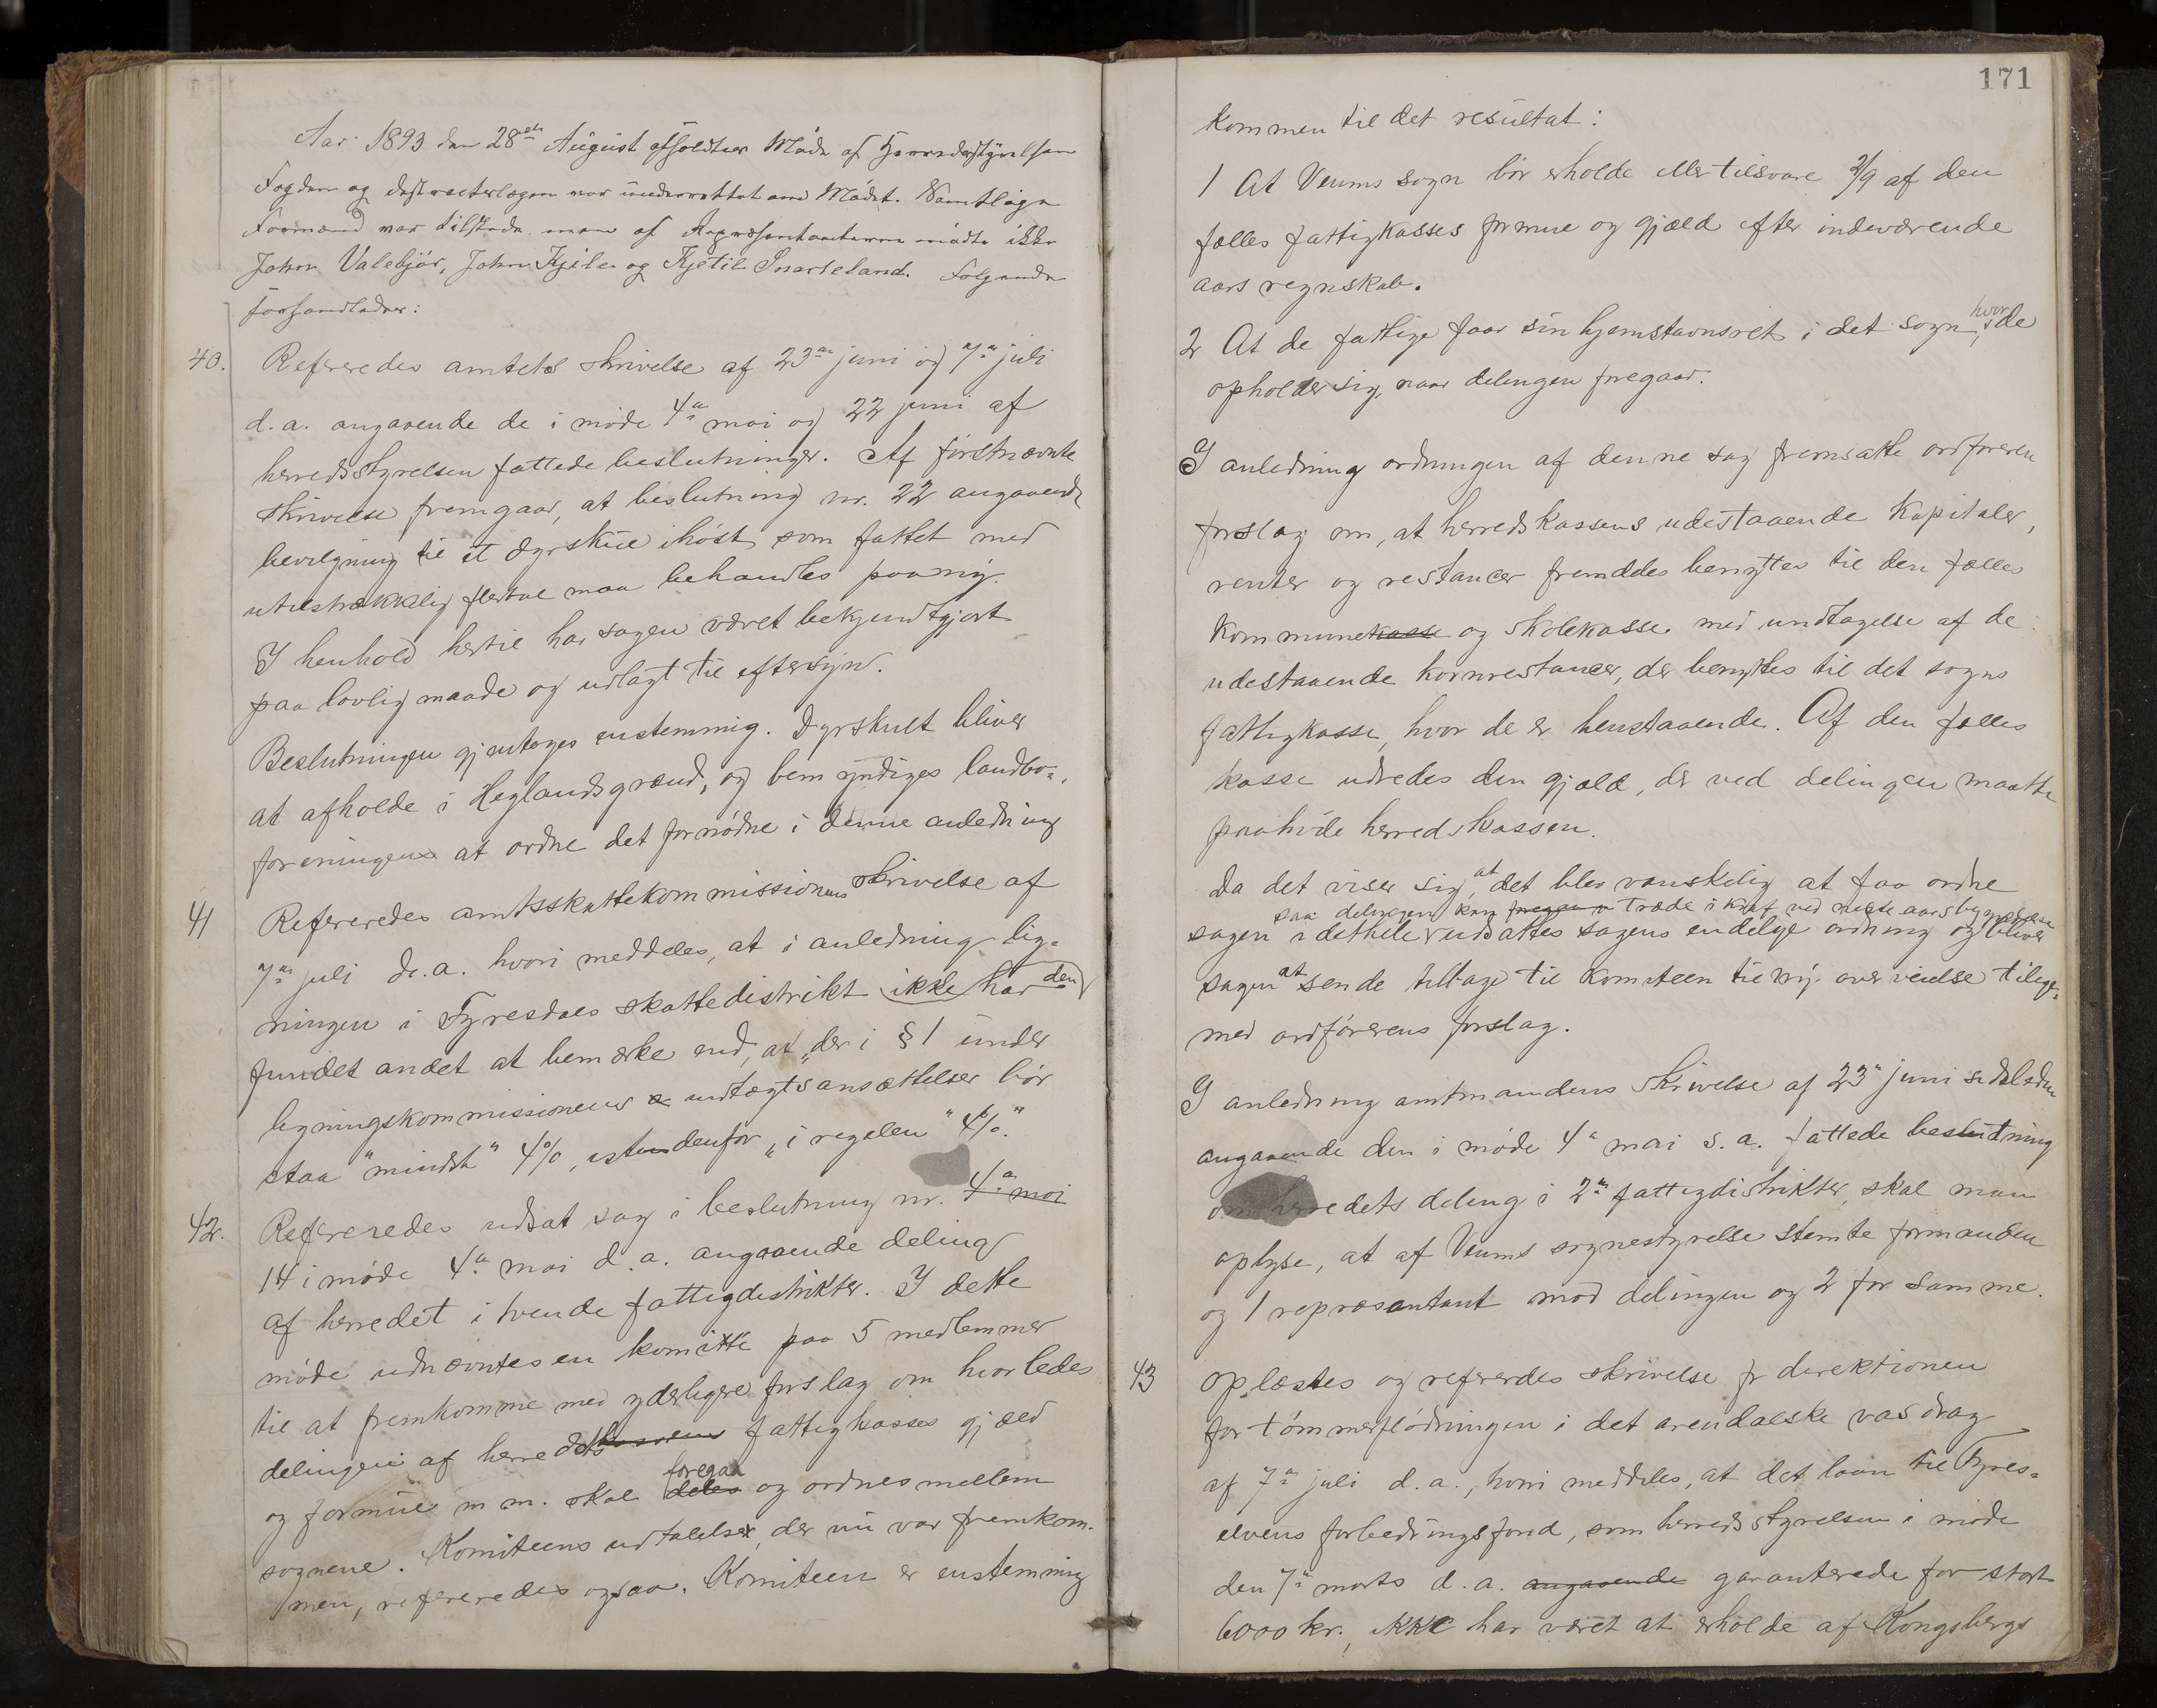 Aar 1893 den 28de August afholdtes Møde af Herredsstyrelsen
Fogden og distriktslægen var underrettet om Mødet. Samtlige
Formænd var tilstede men af Repræsentanterne mødte ikke
John Valebjör, John Kjile og Kjetil Snarteland. Følgende
forhandledes:
40. Refereredes amtets skrivelse af 23de juni og 7de juli
d. a. angaaende de i møde 4de mai og 22 juni af
herredsstyrelsen fattede beslutninger. Af førstnævnte
skrivelse fremgaar, at beslutning nr. 22 angaaende
bevilgning til et dyrskue ihøst, som fattet med
utilstrækkelig flertal maa behandles paany.
I henhold hertil har sagen været bekjendtgjort
paa lovlig maade og udlagt til eftersyn.
Beslutningen gjentoges enstemmig. Dyrskuet bliver
at afholde i Heglandsgrænd, og bemyndiges landbo=
foreningens at ordne det fornødne i denne anledning
41 Refereredes amtsskattekommissionens skrivelse af
7de juli d. a. hvori meddeles, at i anledning lig=
ningen i Fyresdals skattedistrikt ikke har den
fundet andet at bemærke end, at "der i § 1 under
ligningskommissionens indtægtsansættelser bör
staa "mindst" 4%, istendenfor "i regelen" 4%."
42. Refereredes udsat sag i beslutning nr. 4de mai
14 i møde 4de mai d. a. angaaende deling
af herredet i tvende fattigdistrikter. I dette
møde udnævntes en komitte paa 5 medlemmer
til at fremkomme med yderligere forslag om hvorledes
delingen af herredets kassens fattigkasses gjæld
og formue m m. skal deles foregaa og ordnes mellem
sognene. Komiteens udtalelser, der nu var fremkom-
men, refereredes ogsaa. Komiteen er enstemmig
171
kommen til det resultat:
1 At Veums sogn bör erholde eller tilsvare 2/9 af den
fælles fattigkasses formue og gjæld efter indeværende
aars regnskab.
2 At de fattige faar sin hjemstavnsret i det sogn, hvor de
opholder sig, naar delingen foregaar.
I anledning ordningen af denne sag fremsatte ordføreren
forslag om, at herredskassens udestaaende kapitaler,
renter og restancer fremdeles benyttes til den fælles
kommunekasse og skolekasse med undtagelse af de
udestaaende kornrestancer, der benyttes til det sogns
fattigkasse, hvor de er henstaaende. Af den fælles
kasse udredes den gjæld, der ved delingen maatte
paahvile herredskassen.
Da det viser sig, at det blev vanskelig at faa ordne
saa delingen kan træde i kraft ved næste aars begyndelse
sagen i dethele udsattes sagens endelige ordning og bliver
sagen at sende tilbage til komiteen til ny overveielse tilige=
med ordförerens forslag.
I anledning amtmandens skrivelse af 23de juni sidstleden
angaaende den i møde 4de mai s. a. fattede beslutning
om herredets deling i 2de fattigdistrikter, skal man
oplyse, at af Veums sognestyrelse stemte formanden
og 1 repræsentant mod delingen og 2 for samme.
43 Oplæstes og refererdes skrivelse fr direktionen
for tömmerflödningen i det arendalske vasdrag
af 7de juli d. a., hvori meddeles, at det laan til Fyres=
elvens forbedringsfond, som herredsstyrelsen i møde
den 7de marts d. a. angaaende garanterede for stort
6000 kr., ikke har været at erholde af Kongsbergs